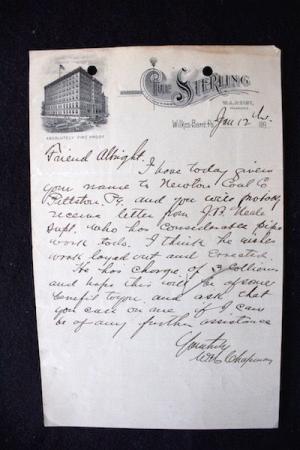 The Sterling
W.A. Reist,
Proprietor.
Absolutely Fire Proof
Wilkes-Barre, Pa. Jan 12 189
Friend Albright.
I have today given
you name to Newton Coal Co
Pittston, Pa. and you will probably
receive letter from J.B. Neale
Supt. who has considerable pipe
work todo. I think he wishes
work layed out and Erected.
He has charge of 3 Collieries
and hope this will be of some
benefit to you. and ask that
you call on me if I can
be of any further assistance
Yours truly
W.H. Chapman